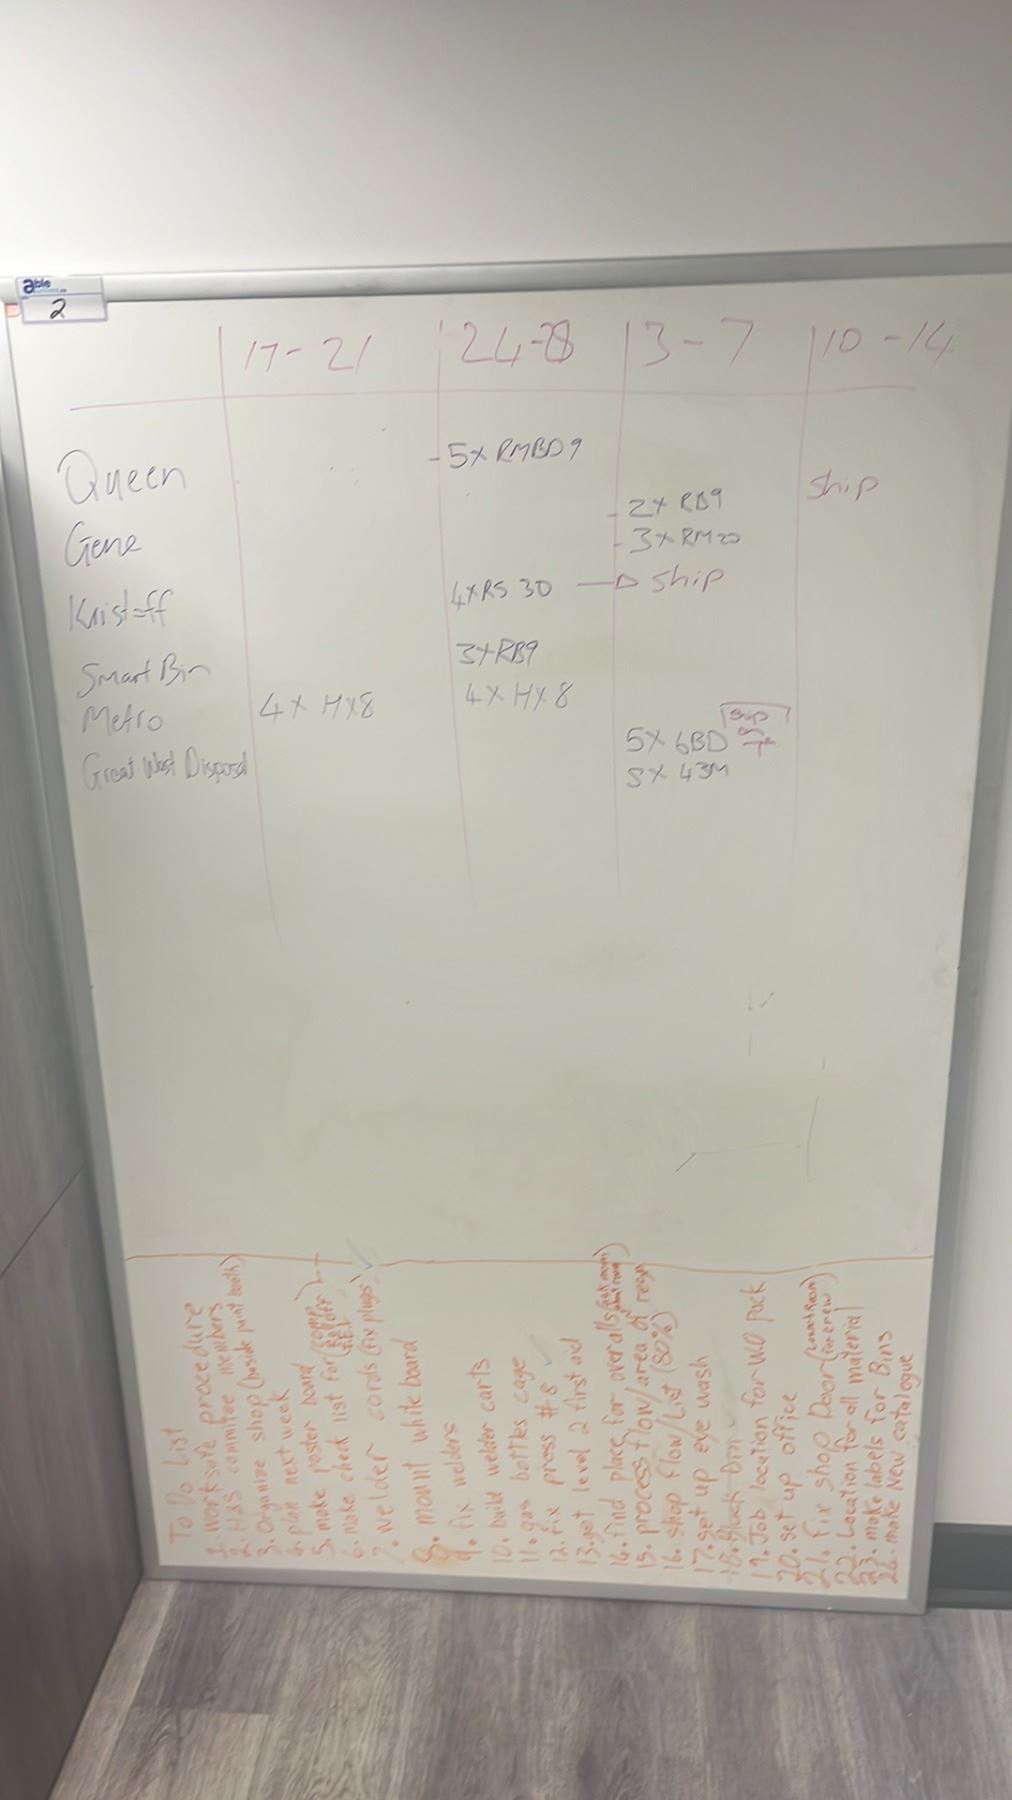 able
2
17-21 24-28 3-7 10-14
Queen - 5x RMBD9 ship
Gene - 2x RB9
- 3x RM20
Kristoff 4xRS 30 → ship
Smart Bin 3xRB9
Metro 4x Hx8 4x Hx8
Great West Disposal 5x 6BD ship on
5x 43M
To Do List
1. work sure procedure
2. H&S commitee members
3. Organize shop (beside paint booth)
4. plan next week
5. make poster board
6. make check list for
7. welder cords (fix plugs) ✓
8. mount white board
9. fix welders
10. build welder carts
11. gas bottles cage
12. fix press #8 ✓
13. get level 2 first aid
14. find place for overalls
15. process flow/area of resp
16. shop flow/List (80%)
17. set up eye wash
18. Bin
19. Job location for WO pack
20. set up office
21. Fix shop Door (for crew)
22. Location for all material
23. make labels for Bins
24. make New catalogue